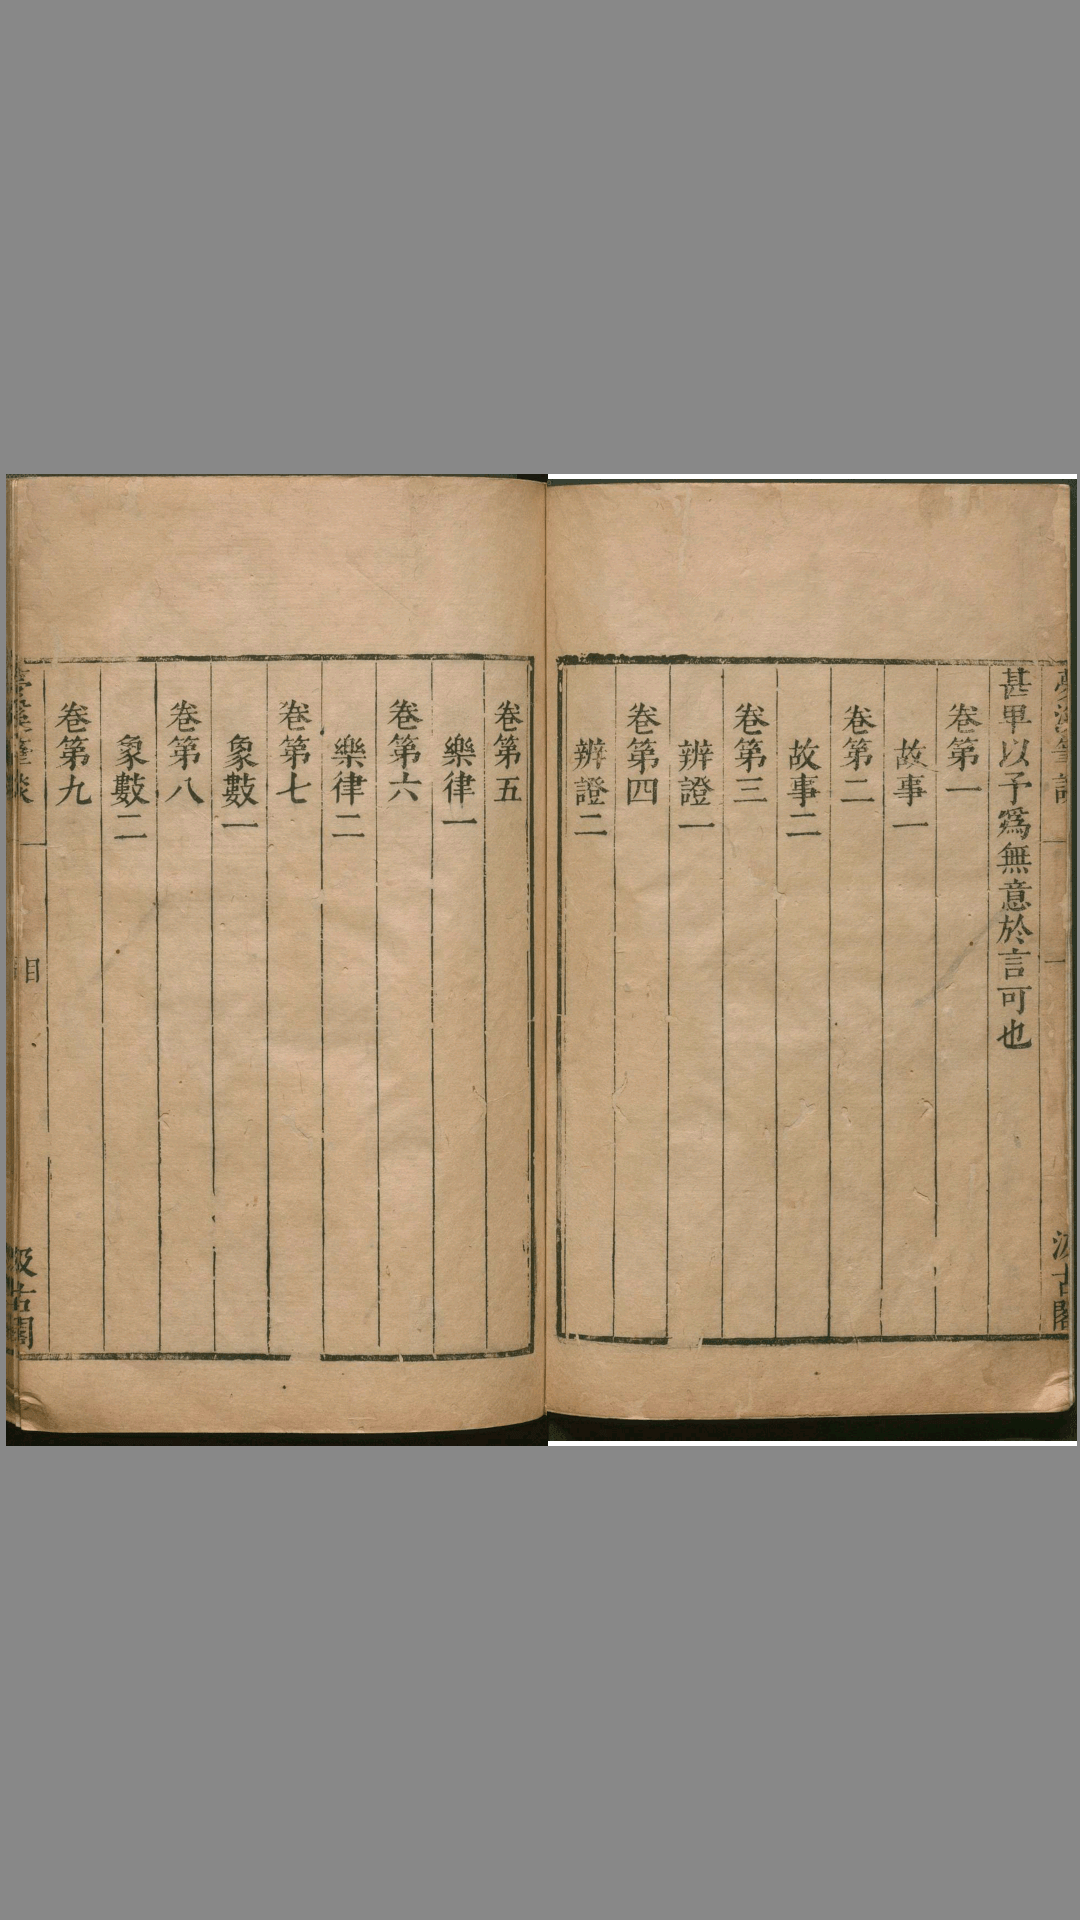 甚卑以予爲無意於言可也
卷第一
故事一
卷第二
故事二
卷第三
辨證一
卷第四
辨證二
卷第五
樂律一
卷第六
樂律二
卷第七
象數一
卷第八
象數二
卷第九
筆談 一
目
汲古閣